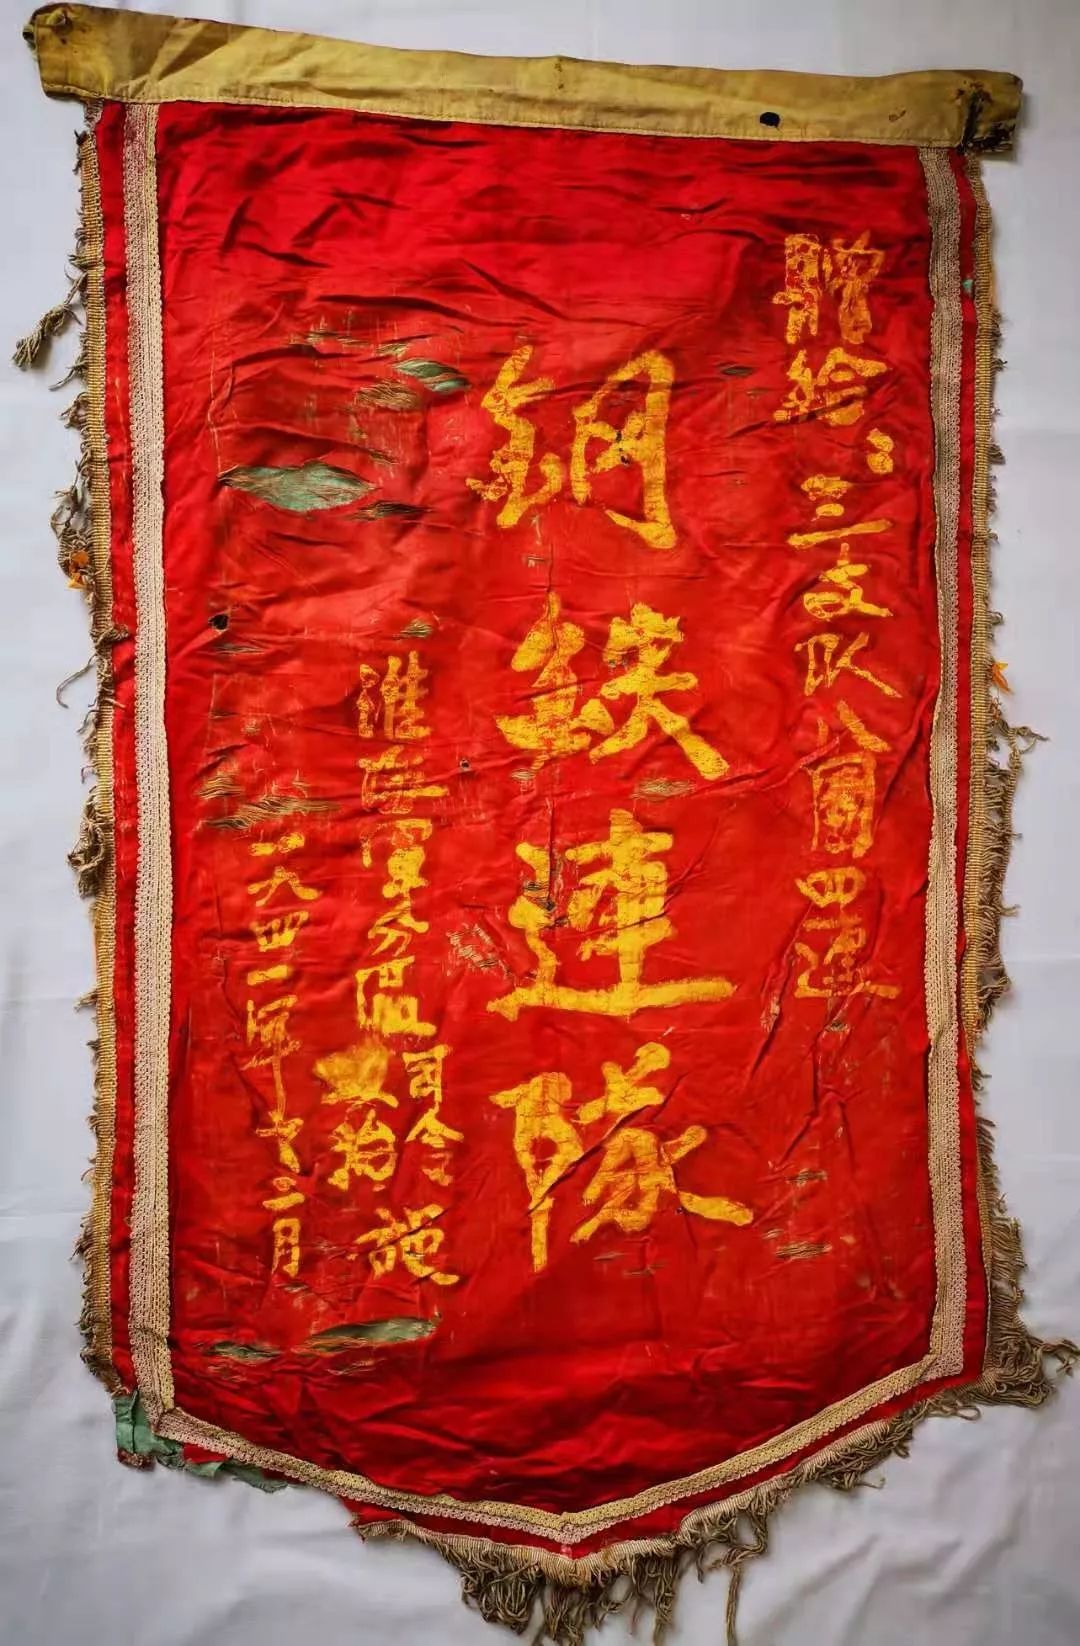 贈给：三支队八團四連
钢鉄連隊
淮海军分區司令政治
一九四一年十二月